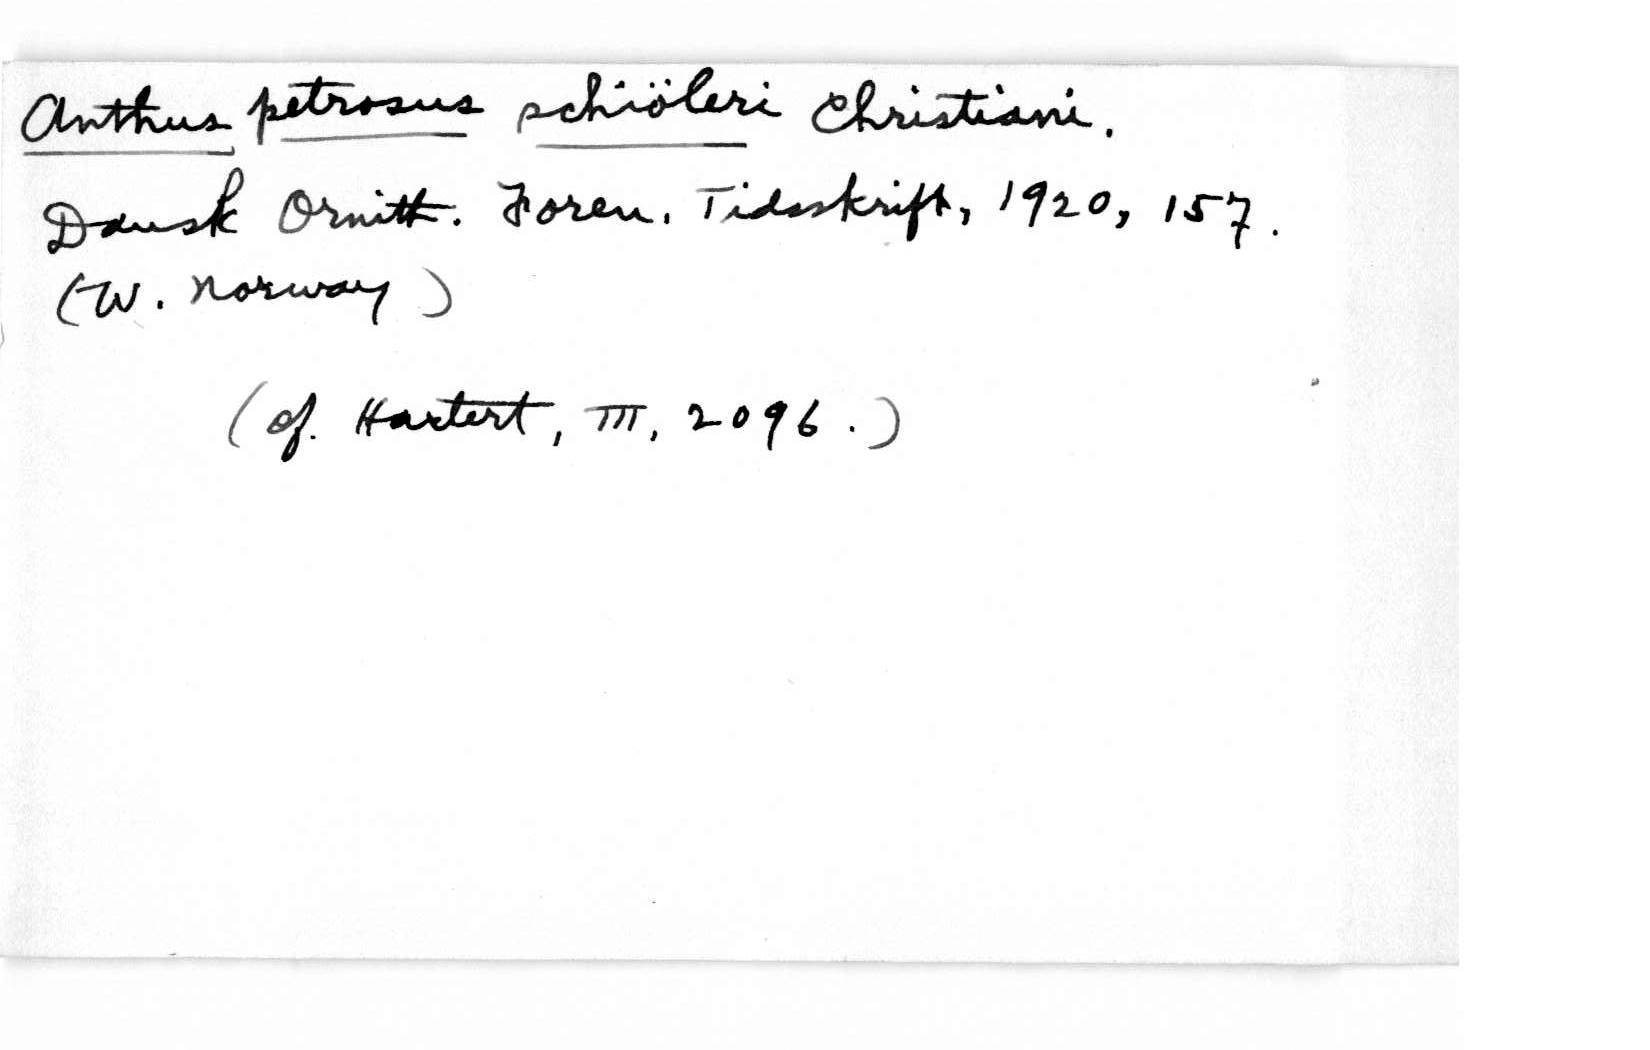 Anthus petrosus schiöleri Christiani.
Dansk Ornith. Foren. Tidsskrift, 1920, 157.
(W. Norway)
(cf. Hartert, III, 2096.)